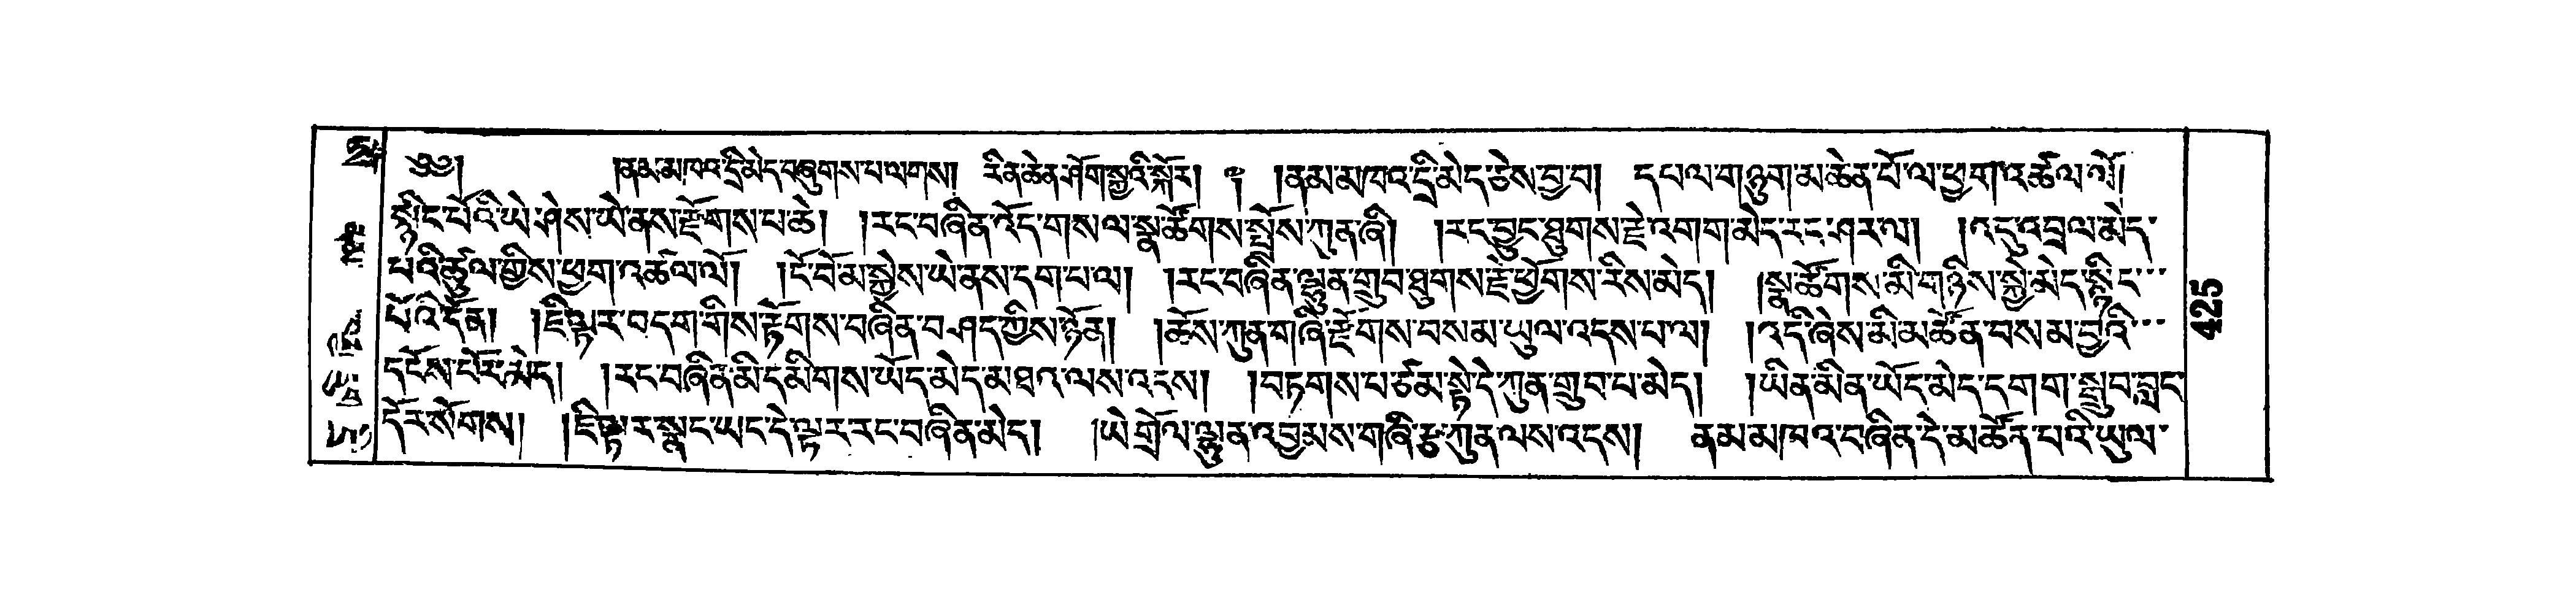 ༄༅། །ནམ་མཁའ་དྲི་མེད་བཞུགས་པ་ལགས། རིན་ཆེན་ཤོག་སྐྱའི་སྐོར། ༈ །ནམ་མཁའ་དྲི་མེད་ཅེས་བྱ་བ། དཔལ་གཉུག་མ་ཆེན་པོ་ལ་ཕྱག་འཚལ་ལོ།
སྙིང་པོའི་ཡེ་ཤེས་ཡེ་ནས་རྫོགས་པ་ཆེ། །རང་བཞིན་འོད་གསལ་སྣ་ཚོགས་སྤྲོས་ཀུན་ཞི། །རང་བྱུང་ཐུགས་རྗེ་འགག་མེད་རང་ཤར་ལ། །འདུ་འབྲལ་མེད་
པའི་ཚུལ་གྱིས་ཕྱག་འཚལ་ལོ། །ངོ་བོ་མ་སྐྱེས་ཡེ་ནས་དག་པ་ལ། །རང་བཞིན་ལྷུན་གྲུབ་ཐུགས་རྗེ་ཕྱོགས་རིས་མེད། །སྣ་ཚོགས་མི་གཉིས་སྐྱེ་མེད་སྙིང་་་
པོའི་དོན། །ཇི་ལྟར་བདག་གིས་རྟོགས་བཞིན་བཤད་ཀྱིས་ཉོན། །ཆོས་ཀུན་གཞི་རྫོགས་བསམ་ཡུལ་འདས་པ་ལ། །འདི་ཞེས་མི་མཚོན་བསམ་བྱའི་་་
དངོས་པོར་མེད། །རང་བཞིན་མི་དམིགས་ཡོད་མེད་མཐའ་ལས་འདས། །བཏགས་པ་ཙམ་སྟེ་དེ་ཀུན་གྲུབ་པ་མེད། །ཡིན་མིན་ཡོད་མེད་དགག་སྒྲུབ་བླང་
དོར་སོགས། །ཇི་ལྟར་སྣང་ཡང་དེ་ལྟར་རང་བཞིན་མེད། །ཡེ་གྲོལ་ལྷུན་འབྱམས་གཞི་རྩ་ཀུན་ལས་འདས། ནམ་མཁའ་བཞིན་དེ་མཚོན་པའི་ཡུལ་